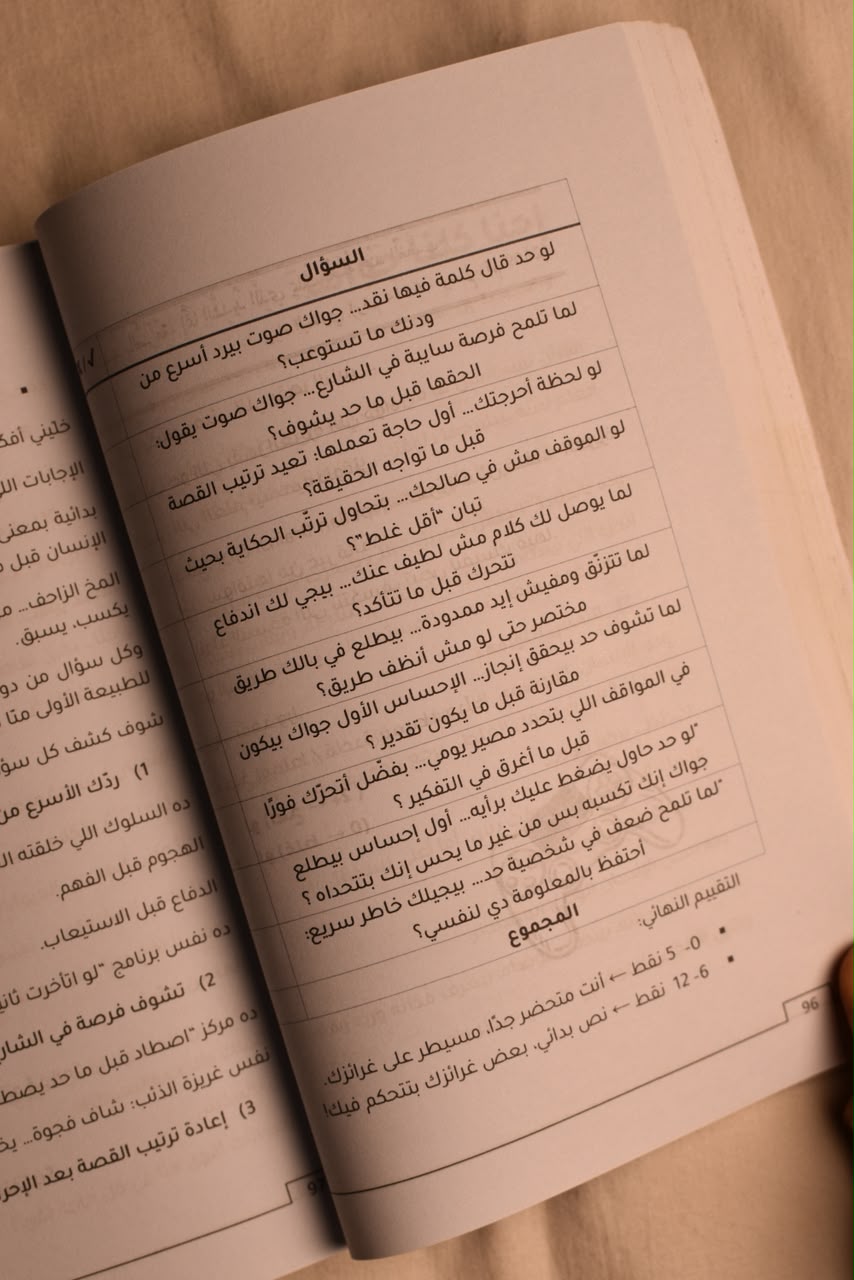 السؤال
✓/
لو حد قال كلمة فيها نقد... جواك صوت بيرد أسرع من
ودنك ما تستوعب؟
لما تلمح فرصة سايبة في الشارع... جواك صوت يقول:
الحقها قبل ما حد يشوف؟
لو لحظة أحرجتك... أول حاجة تعملها: تعيد ترتيب القصة
قبل ما تواجه الحقيقة؟
لو الموقف مش في صالحك... بتحاول ترتّب الحكاية بحيث
تبان "أقل غلط"؟
لما يوصل لك كلام مش لطيف عنك... بيجي لك اندفاع
تتحرك قبل ما تتأكد؟
لما تتزنّق ومفيش إيد ممدودة... بيطلع في بالك طريق
مختصر حتى لو مش أنظف طريق؟
لما تشوف حد بيحقق إنجاز... الإحساس الأول جواك بيكون
مقارنة قبل ما يكون تقدير ؟
في المواقف اللي بتحدد مصير يومي... بفضّل أتحرّك فورًا
قبل ما أغرق في التفكير ؟
"لو حد حاول يضغط عليك برأيه... أول إحساس بيطلع
جواك إنك تكسبه بس من غير ما يحس إنك بتتحداه ؟
"لما تلمح ضعف في شخصية حد... بيجيلك خاطر سريع:
أحتفظ بالمعلومة دي لنفسي؟
المجموع
التقييم النهائي:
▪ 0- 5 نقط ← أنت متحضر جدًا، مسيطر على غرائزك.
▪ 6- 12 نقط ← نص بدائي، بعض غرائزك بتتحكم فيك!
96
خلّيني أفك
الإجابات
بدائية بمعنى
الإنسان قبل
المخ الزاحف...
يكسب، يسبق.
وكل سؤال من
للطبيعة الأولى منّا
شوف كشف كل
1) ردّك الأسرع
ده السلوك اللي خلقته
الهجوم قبل الفهم.
الدفاع قبل الاستيعاب.
ده نفس برنامج "لو اتأخرت
2) تشوف فرصة في
ده مركز "اصطاد قبل ما حد
نفس غريزة الذئب: شاف فجوة...
3) إعادة ترتيب القصة بعد